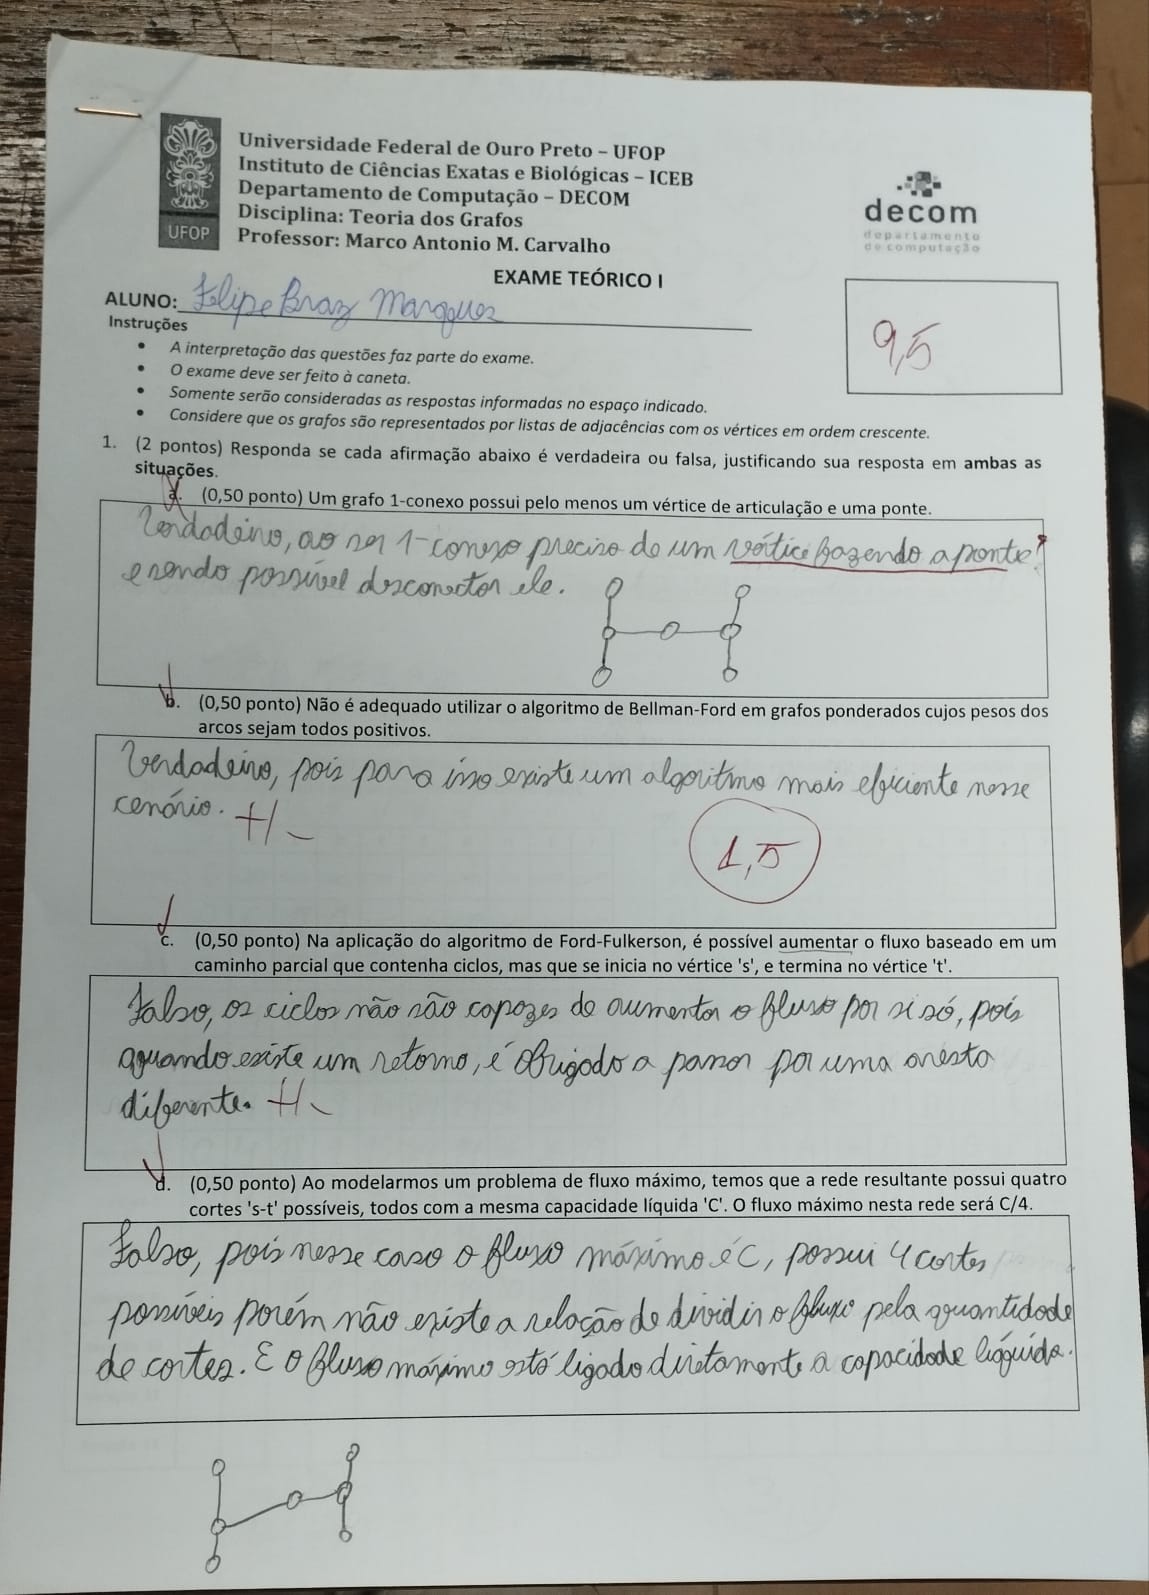 Universidade Federal de Ouro Preto – UFOP
Instituto de Ciências Exatas e Biológicas – ICEB
Departamento de Computação – DECOM
Disciplina: Teoria dos Grafos
Professor: Marco Antonio M. Carvalho
UFOP
decom
departamento
de computação
EXAME TEÓRICO I
ALUNO: Felipe Braz Marques
9,5
Instruções
• A interpretação das questões faz parte do exame.
• O exame deve ser feito à caneta.
• Somente serão consideradas as respostas informadas no espaço indicado.
• Considere que os grafos são representados por listas de adjacências com os vértices em ordem crescente.
1. (2 pontos) Responda se cada afirmação abaixo é verdadeira ou falsa, justificando sua resposta em ambas as
situações.
a. (0,50 ponto) Um grafo 1-conexo possui pelo menos um vértice de articulação e uma ponte.
Verdadeiro, ao ser 1-conexo precisa de um vértice fazendo a ponte ?
e sendo possível desconectar ele.
b. (0,50 ponto) Não é adequado utilizar o algoritmo de Bellman-Ford em grafos ponderados cujos pesos dos
arcos sejam todos positivos.
Verdadeiro, pois para isso existe um algoritmo mais eficiente nesse
cenário. +/-
1,5
c. (0,50 ponto) Na aplicação do algoritmo de Ford-Fulkerson, é possível aumentar o fluxo baseado em um
caminho parcial que contenha ciclos, mas que se inicia no vértice 's', e termina no vértice 't'.
Falso, os ciclos não são capazes de aumentar o fluxo por si só, pois
quando existe um retorno, é obrigado a passar por uma aresta
diferente. +/-
d. (0,50 ponto) Ao modelarmos um problema de fluxo máximo, temos que a rede resultante possui quatro
cortes 's-t' possíveis, todos com a mesma capacidade líquida 'C'. O fluxo máximo nesta rede será C/4.
Falso, pois nesse caso o fluxo máximo é C, possui 4 cortes
possíveis porém não existe a relação de dividir o fluxo pela quantidade
de cortes. E o fluxo máximo está ligado diretamente a capacidade líquida.